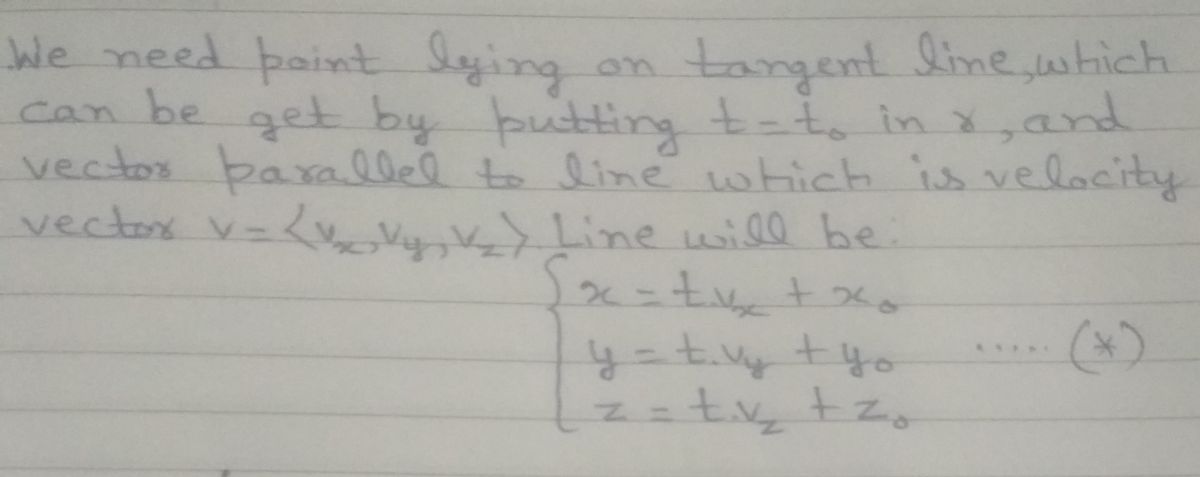 We need point lying on tangent line, which
can be get by putting t = t₀ in r, and
vector parallel to line which is velocity
vector v = <vₓ, v_y, v_z> Line will be:
x = t.vₓ + x₀
y = t.v_y + y₀ ..... (*)
z = t.v_z + z₀